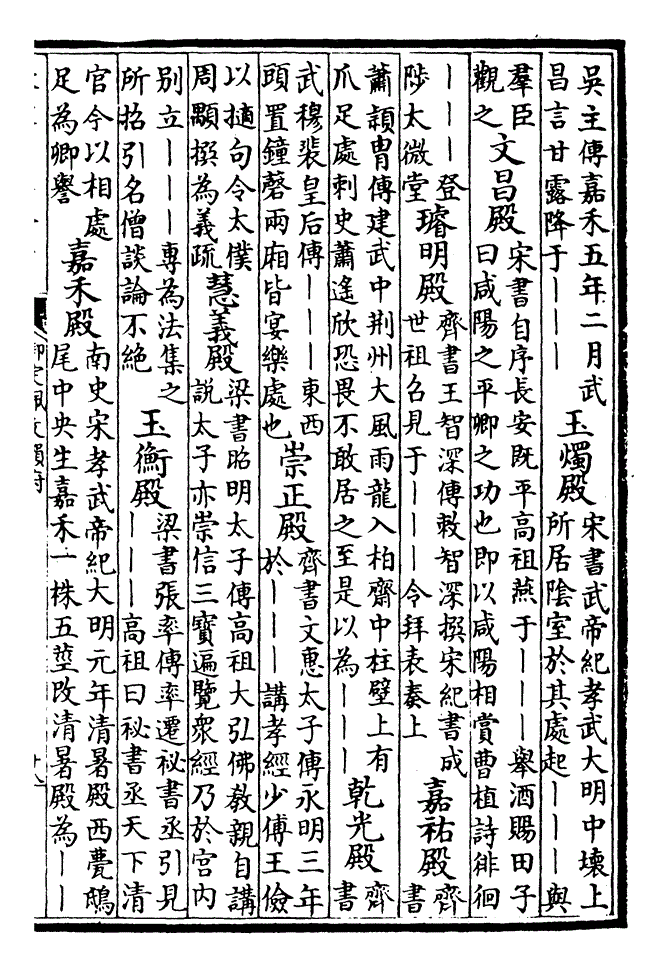 吳主傳嘉禾五年二月武
昌言甘露降于｜｜｜
玉燭殿
宋書武帝紀孝武大明中壞上
所居陰室於其處起｜｜｜與
羣臣
觀之
文昌殿
宋書自序長安既平高祖燕于｜｜｜舉酒賜田子
曰咸陽之平卿之功也即以咸陽相賞曹植詩徘徊
｜｜｜登
陟太微堂
璿明殿
齊書王智深傳敕智深撰宋紀書成
世祖召見于｜｜｜令拜表奏上
嘉祐殿
齊
書
蕭穎胄傳建武中荆州大風雨龍入柏齋中柱壁上有
爪足處刺史蕭遙欣恐畏不敢居之至是以為｜｜｜
乾光殿
齊
書
武穆裴皇后傳｜｜｜東西
頭置鐘磬兩廂皆宴樂處也
崇正殿
齊書文惠太子傳永明三年
於｜｜｜講孝經少傅王儉
以擿句令太僕
周顒撰為義疏
慧義殿
梁書昭明太子傳高祖大引佛教親自講
說太子亦崇信三寶遍覽衆經乃於宮内
別立｜｜｜專為法集之
所招引名僧談論不絶
玉衡殿
梁書張率傳率遷祕書丞引見
｜｜｜高祖曰祕書丞天下清
官今以相處
足為卿譽
嘉禾殿
南史宋孝武帝紀大明元年清暑殿西甍鴟
尾中央生嘉禾一株五莖改清暑殿為｜｜